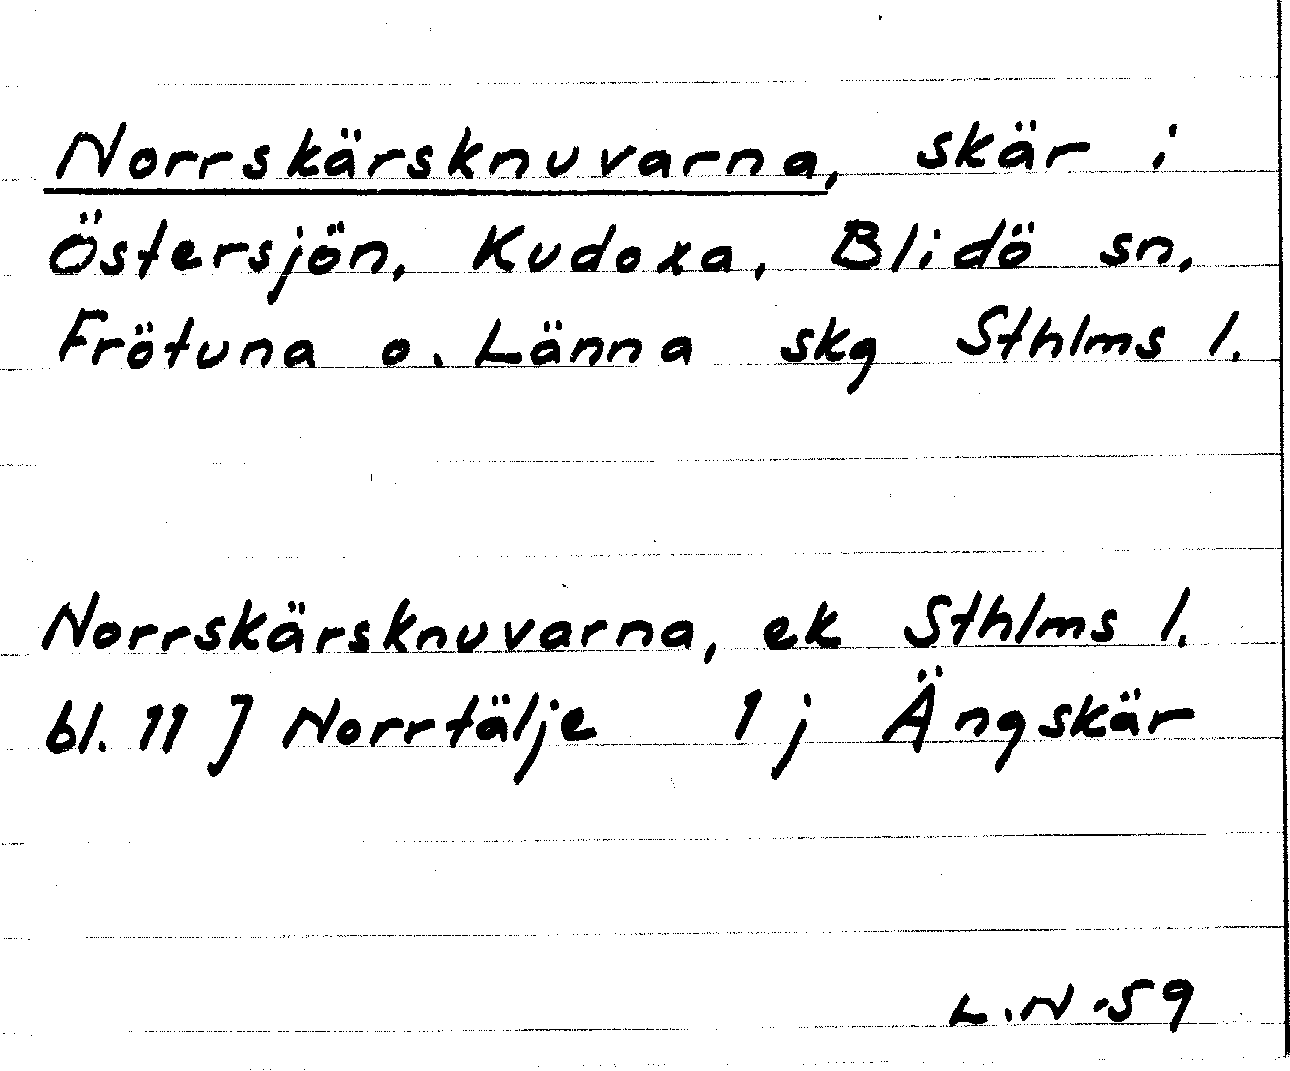 Norrskärsknuvarna, skär i
Östersjön, Kudoxa, Blidö sn,
Frötuna o. Länna skg Sthlms l.
Norrskärsknuvarna, ek Sthlms l.
bl. 11 J Norrtälje 1 j Ängskär
L.N -59